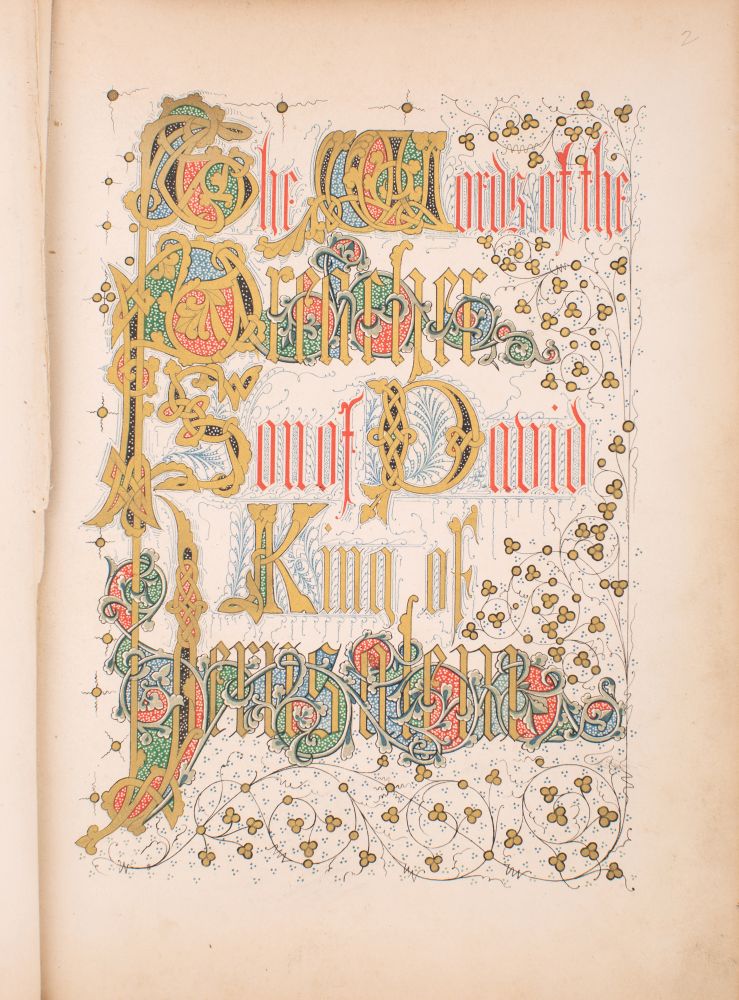 2
The Words of the
Preacher
Son of David
King of
Jerusalem